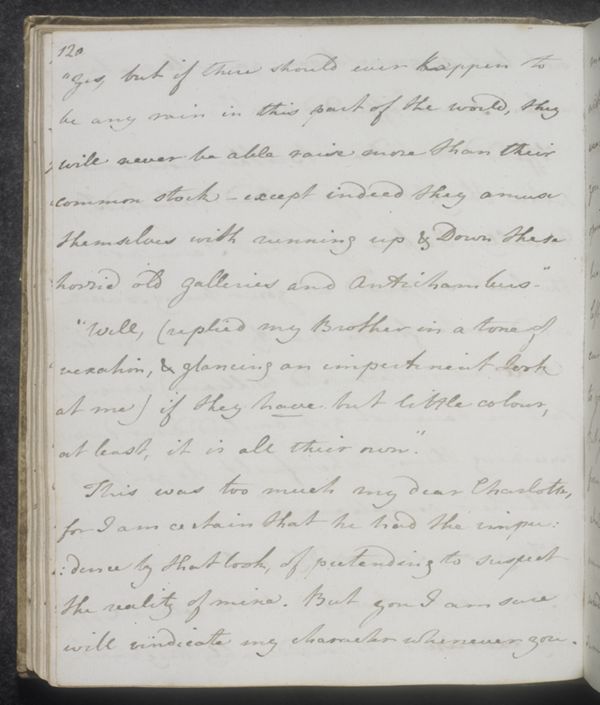 120
"Yes, but if there should ever happen to
be any rain in this part of the world, they
will never be able raise more than their
common stock - except indeed they amuse
themselves with running up & Down these
horrid old galleries and Antichambers."
"Well, (replied my Brother in a tone of
vexation, & glancing an impertinent look
at me) if they have but little colour,
at least, it is all their own."
This was too much my dear Charlotte,
for I am certain that he had the impu:
:dence by that look, of pretending to suspect
the reality of mine. But you I am sure
will vindicate my character whenever you